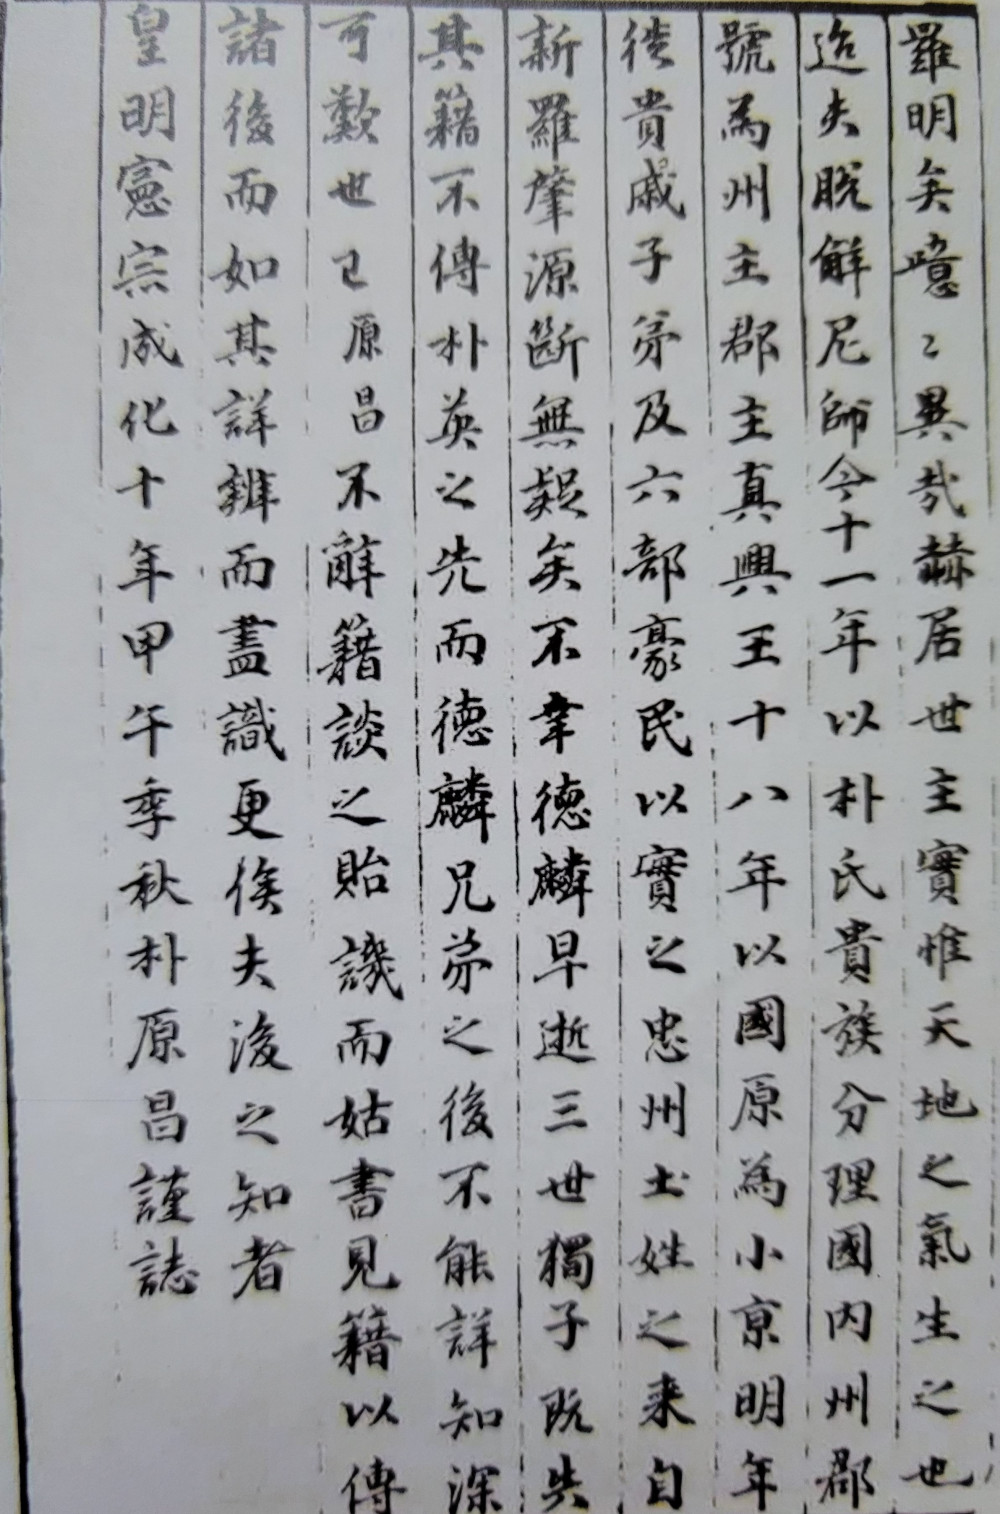 羅明矣噫〻異哉赫居世主實惟天地之氣生之也
迨夫脫解尼師今十一年以朴氏貴族分理國内州郡
號爲州主郡主真興王十八年以國原爲小京明年
徙貴戚子弟及六部豪民以實之忠州土姓之来自
新羅肇源斷無疑矣不幸德麟早逝三世獨子既失
其籍不傳朴英之先而德麟兄弟之後不能詳知深
可歎也已原昌不辭籍談之貽譏而姑書見籍以傳
諸後而如其詳辨而盡識更俟夫後之知者
皇明憲宗成化十年甲午季秋朴原昌謹誌